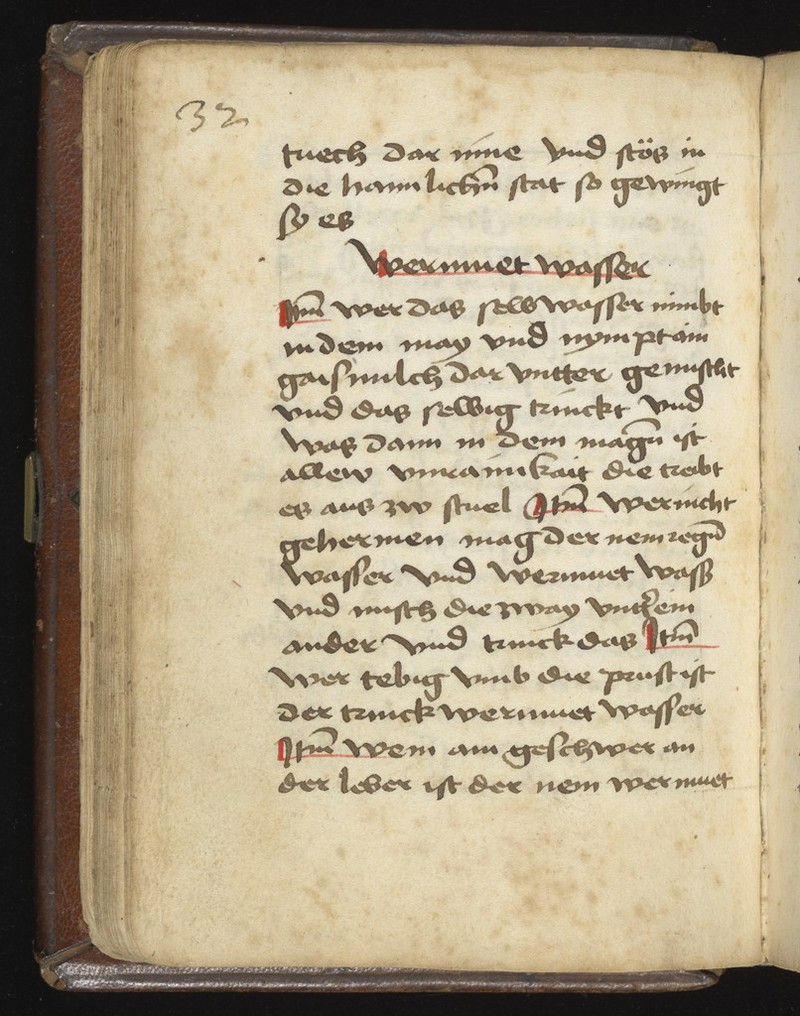 32
tuech dar inne vnd stös in
die haimlichn̄ stat so gewingt
sy es
Wermuet wasser
Itm̄ wer das selb wasser nimbt
in dem may vnd nympt ain
gaismilch dar vntter gemischt
vnd das selbig trinckt vnd
was dann in dem magn̄ ist
allew vnrainikait die treibt
es aus zw stuel Itm̄ wer nicht
geharmen mag der nem regn̄
wasser vnd wermuet wass
vnd misch die zway vntter ein
ander vnd trinck das Itm̄
wer tebig vmb die prust ist
der trinck wermuet wasser
Itm̄ wem ain geschwer an
der leber ist der nem wermuet